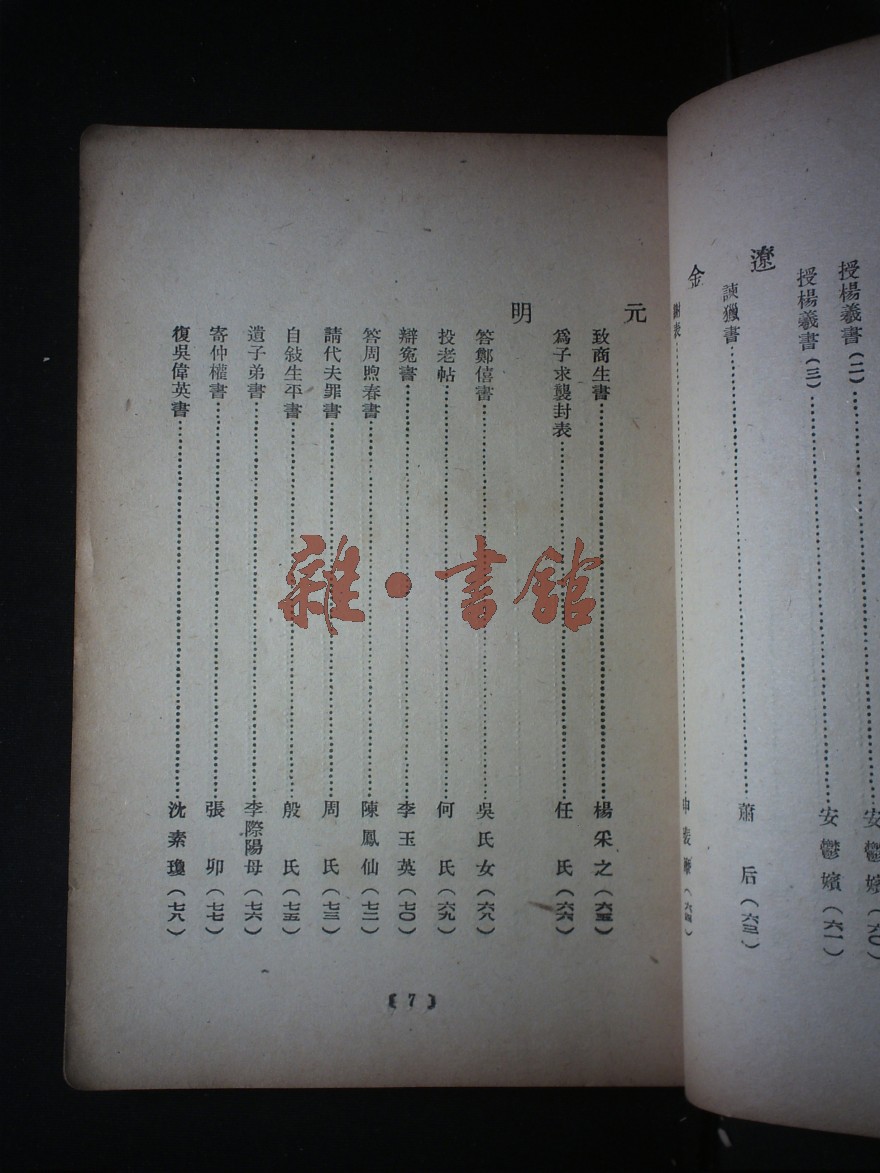 授楊羲書(二)……安鬱嬪(六〇)
授楊羲書(三)……安鬱嬪(六一)
遼
諫獵書……蕭后(六三)
金
謝表……
元
致商生書……楊采之(六五)
爲子求襲封表……任氏(六六)
明
答鄭僖書……吳氏女(六八)
投老帖……何氏(六九)
辯冤書……李玉英(七〇)
答周煦春書……陳鳳仙(七二)
請代夫罪書……周氏(七三)
自敍生平書……殷氏(七五)
遺子弟書……李際陽母(七六)
寄仲權書……張卯(七七)
復吳偉英書……沈素瓊(七八)
〔7〕
雜·書館